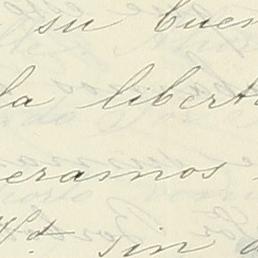 su buen
la libert
eramos
Vd. sin